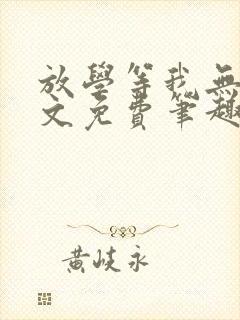 放學等我無
文免費筆趣
黃歧永